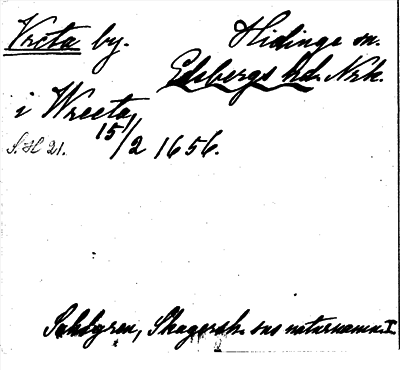 Vreta by. Hidinge sn.
Edsbergs hd. Nrk.
i Wreeta
S.H 21. 15/2 1656.
Sahlgren, Skagersh. sns naturnamn I.